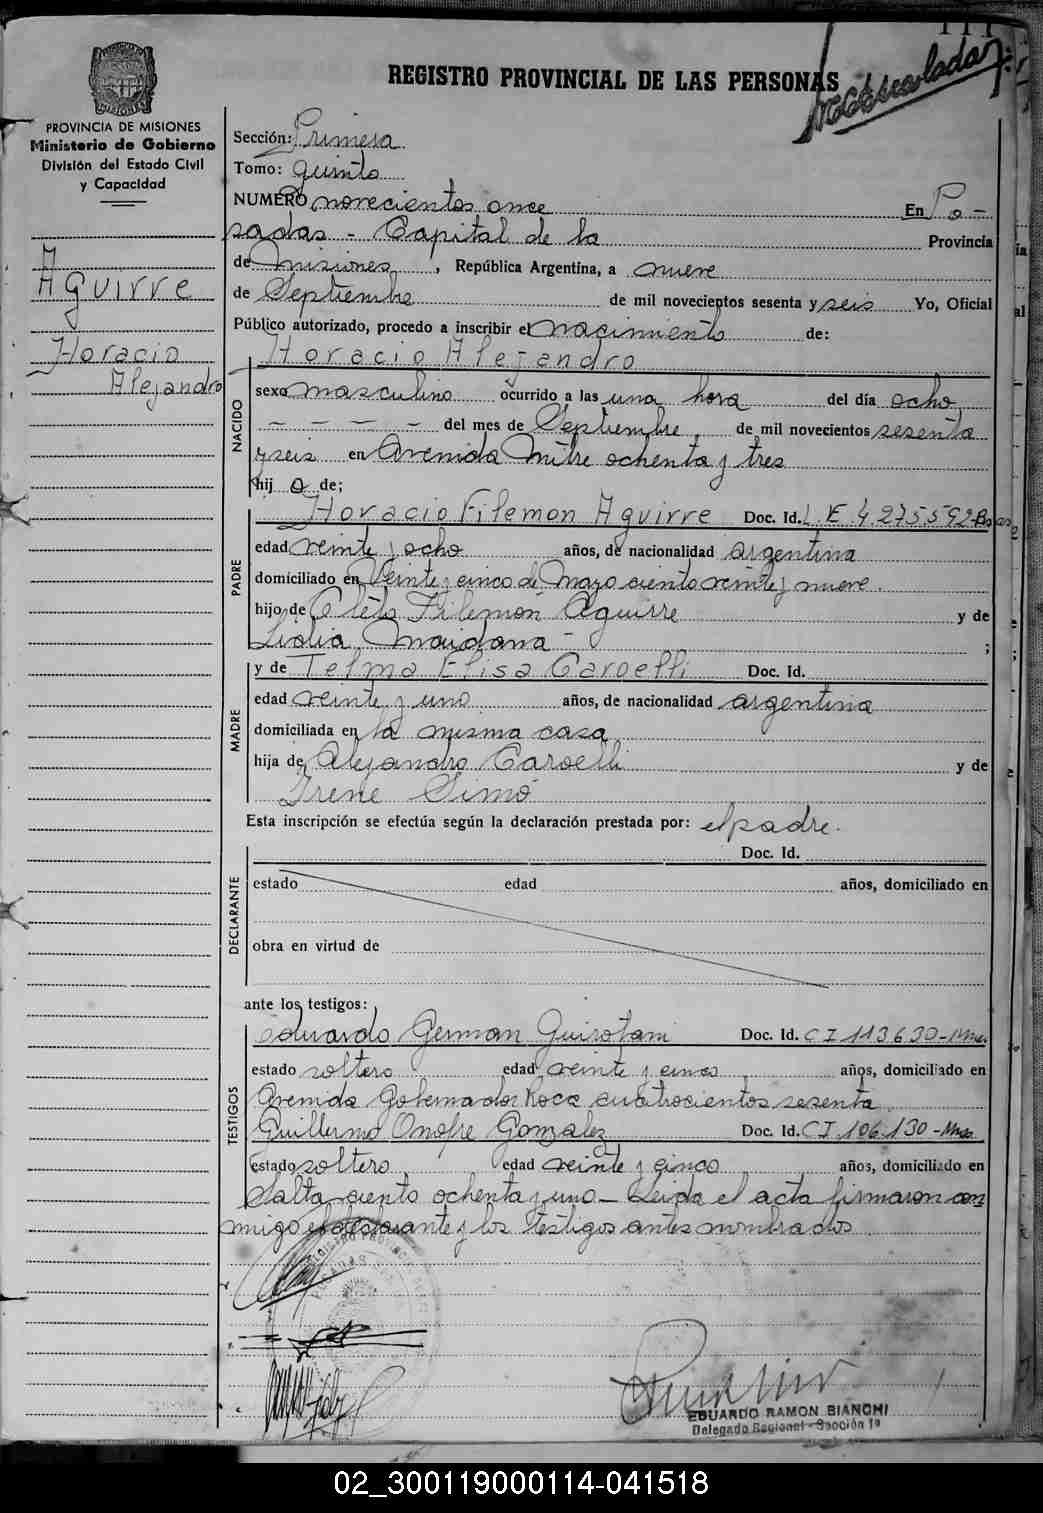 REGISTRO PROVINCIAL DE LAS PERSONAS
PROVINCIA DE MISIONES
Ministerio de Gobierno
División del Estado Civil
y Capacidad
Aguirre
Horacio
Alejandro
Sección: Primera
Tomo: quinto
NUMERO novecientos once En Po-
sadas - Capital de la Provincia
de Misiones, República Argentina, a nueve
de Septiembre de mil novecientos sesenta y seis Yo, Oficial
Público autorizado, procedo a inscribir el nacimiento de:
Horacio Alejandro
NACIDO
sexo masculino ocurrido a las una hora del día ocho
- - - - del mes de Septiembre de mil novecientos sesenta
y seis en Avenida Mitre ochenta y tres
hij o de;
Horacio Filemon Aguirre Doc. Id. L.E. 4.275.592
PADRE
edad veinte y ocho años, de nacionalidad argentina
domiciliado en Veinte y cinco de Mayo ciento veinte y nueve.
hijo de Cleto Filemón Aguirre y de
Lidia Maidana - ;
y de Telma Elisa Caroelli Doc. Id.
MADRE
edad veinte y uno años, de nacionalidad argentina
domiciliada en la misma casa
hija de Alejandro Caroelli y de
Irene Simó
Esta inscripción se efectúa según la declaración prestada por: el padre.
Doc. Id.
DECLARANTE
estado edad años, domiciliado en
obra en virtud de
ante los testigos:
Eduardo German Doc. Id. CI 113630-Mnes.
TESTIGOS
estado soltero edad veinte y cinco años, domiciliado en
Avenida Gobernador Roca cuatrocientos sesenta
Guillermo Onofre Gonzalez Doc. Id. CI 106.130-Mnes
estado soltero edad veinte y cinco años, domiciliado en
Salta ciento ochenta y uno - Leida el acta firmaron con
migo el declarante y los testigos antes nombrados.
EDUARDO RAMON BIANCHI
Delegado Regional - Sección 1ª
02_300119000114-041518